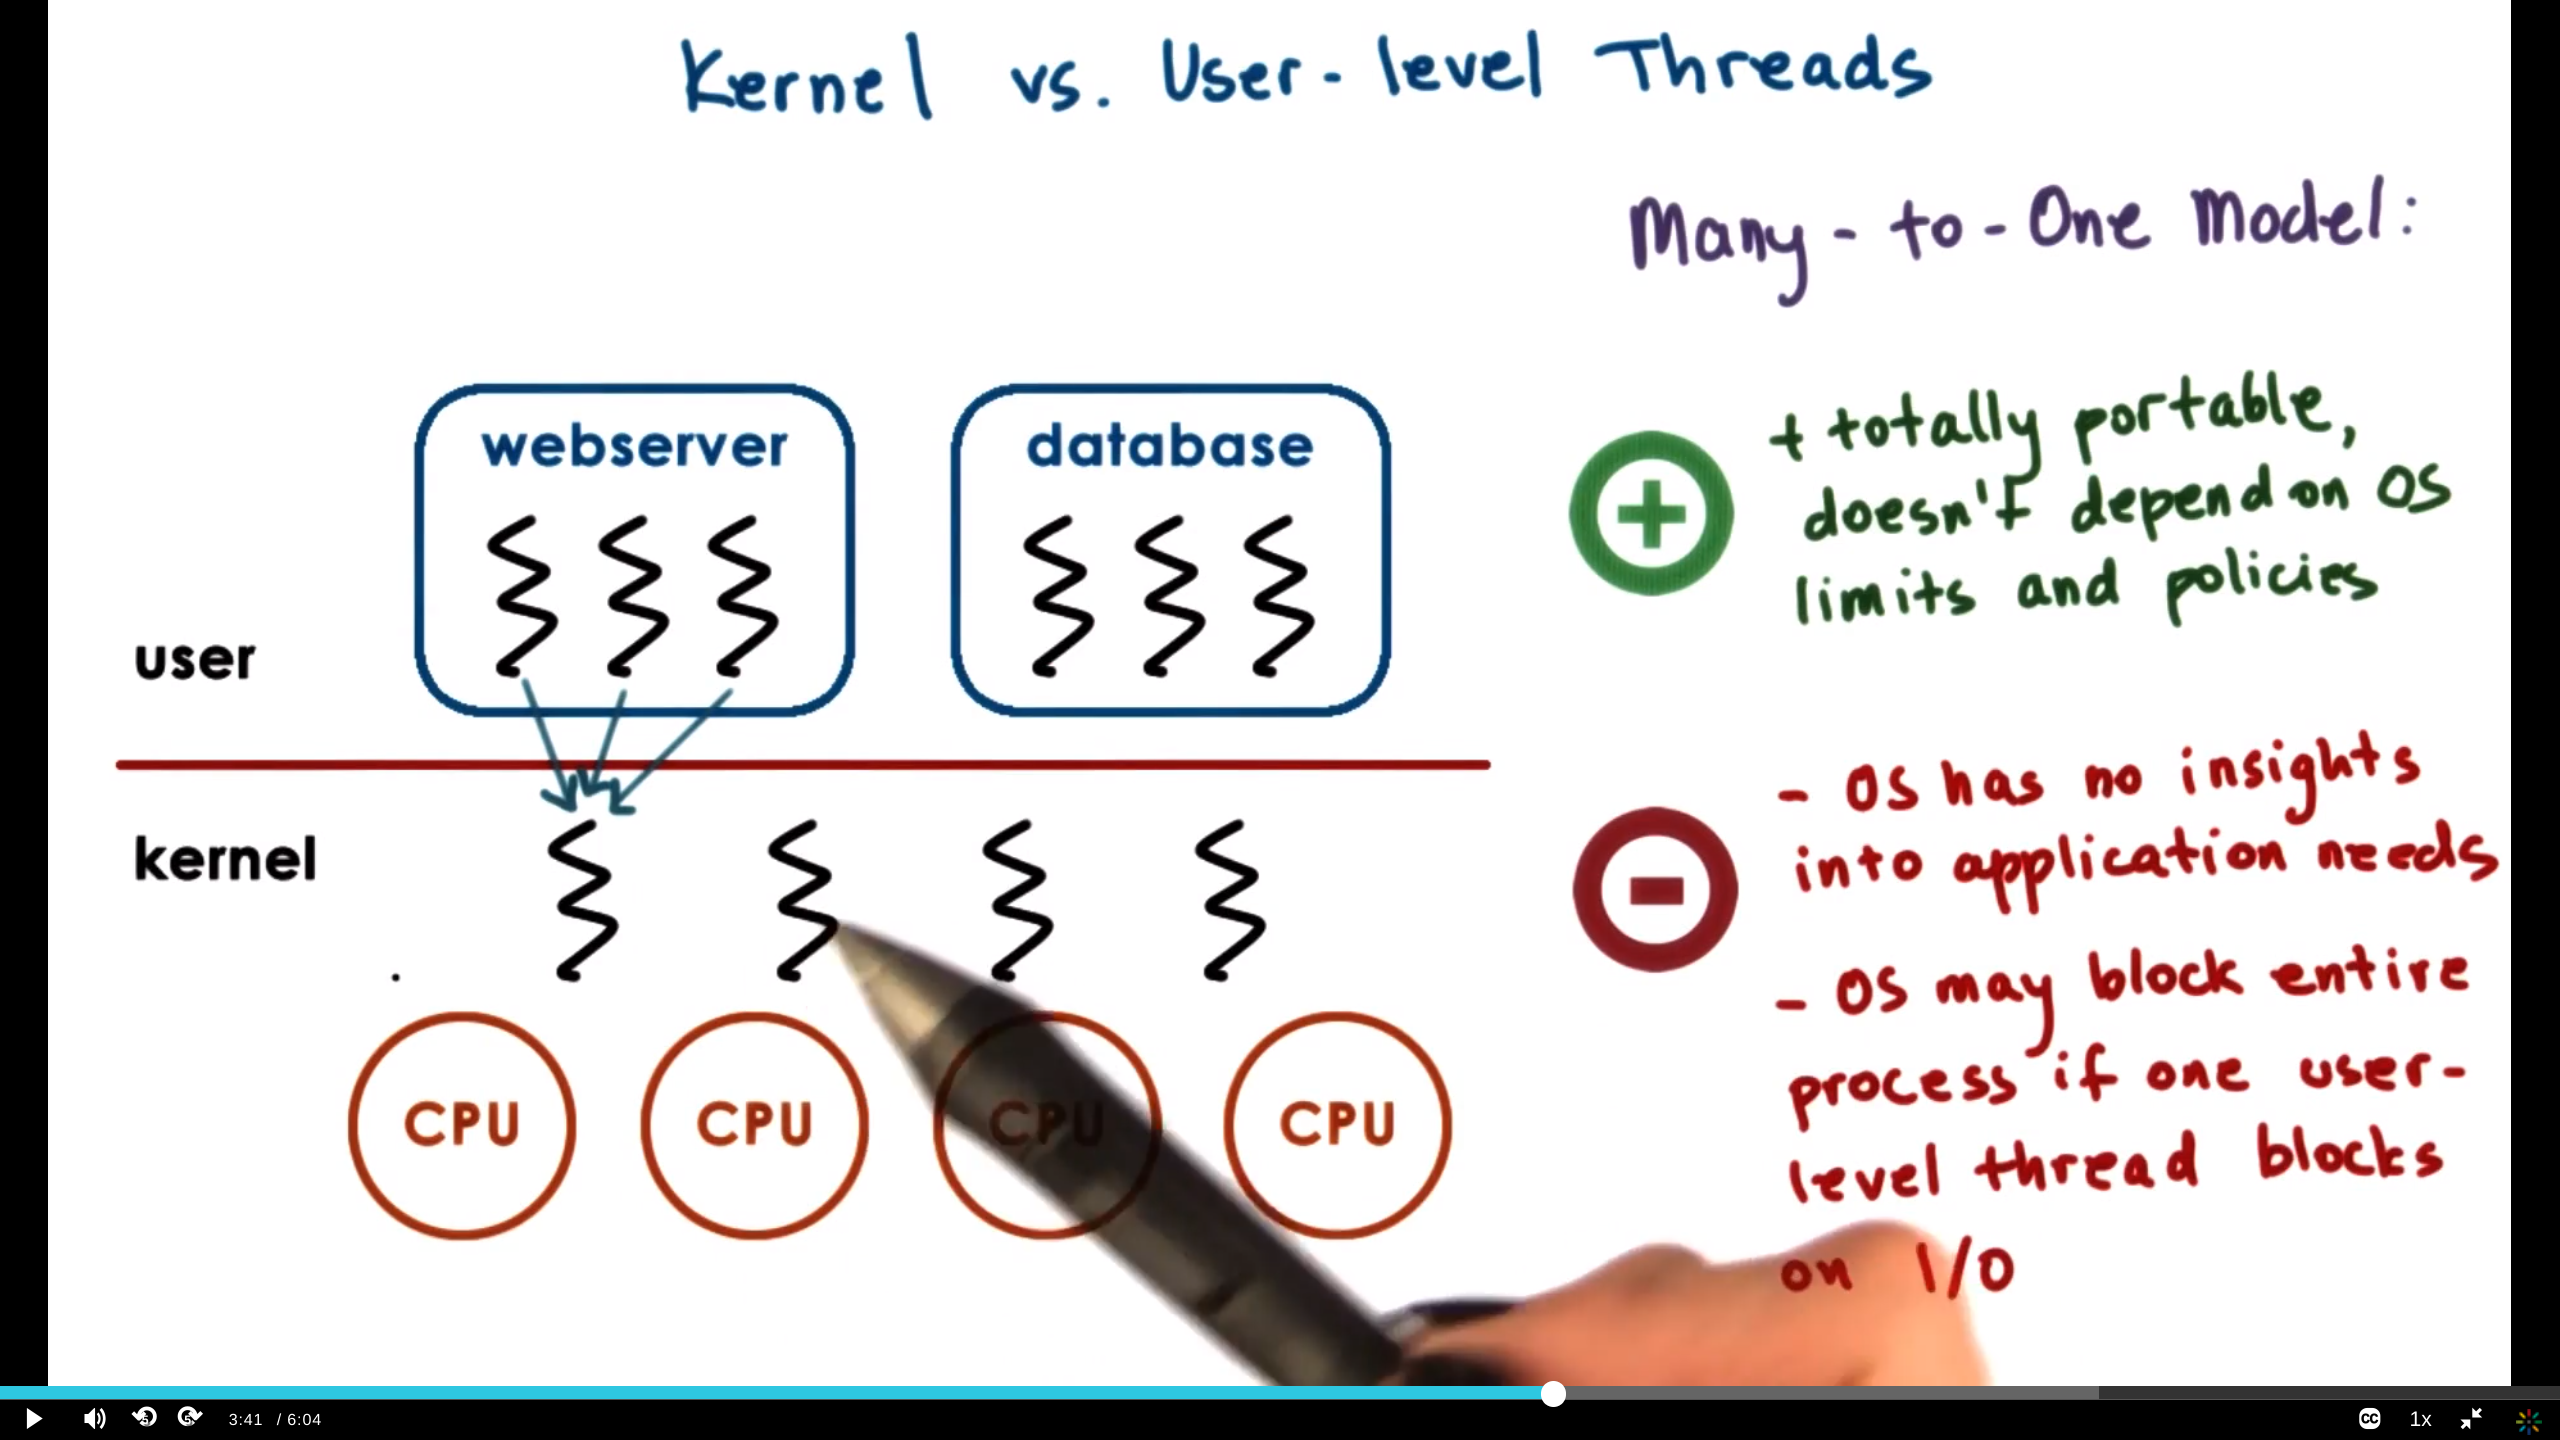 Kernel vs. User-level Threads
Many-to-One Model:
webserver
database
user
kernel
CPU
CPU
CPU
CPU
+ totally portable,
doesn't depend on OS
limits and policies
- OS has no insights
into application needs
- OS may block entire
process if one user-
level thread blocks
on I/O
3:41 / 6:04
CC
1x